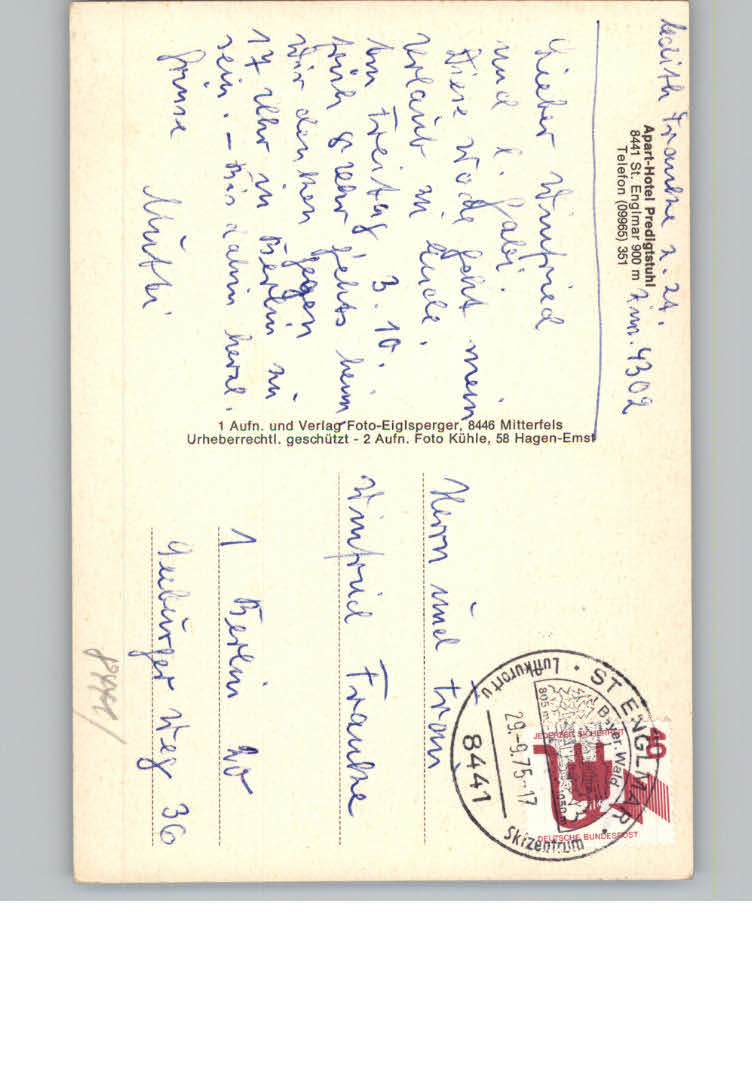 Edith Franke z. Zt.
Apart-Hotel Predigtstuhl
8441 St. Englmar 900 m
Telefon (09965) 351
Zim. 4302
Lieber Winfried
und l. Gabi.
Diese Woche geht mein
Urlaub zu Ende.
Am Freitag 3.10.
früh 8 Uhr gehts heim
Wir denken gegen
17 Uhr in Berlin zu
sein. – Bis dahin herzl.
Grüsse Mutti
1 Aufn. und Verlag Foto-Eiglsperger, 8446 Mitterfels
Urheberrechtl. geschützt - 2 Aufn. Foto Kühle, 58 Hagen-Emst
Herrn und Frau
Winfried Franke
1 Berlin 20
Weg 36
8441
ST ENGLMAR
Luftkurort u.
Skizentrum
29.-9.75-17
8441
Bayer. Wald
805 m
1050 m
40
JEDERZEIT SICHERHEIT
DEUTSCHE BUNDESPOST